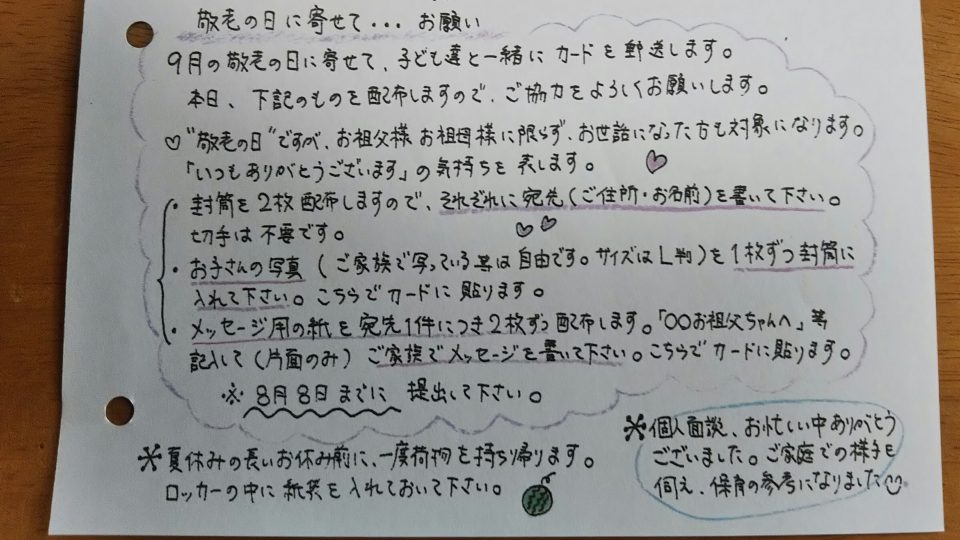 敬老の日に寄せて... お願い
9月の敬老の日に寄せて、子ども達と一緒にカードを郵送します。
本日、下記のものを配布しますので、ご協力をよろしくお願いします。
♡"敬老の日"ですが、お祖父様 お祖母様に限らず、お世話になった方も対象になります。
「いつもありがとうございます」の気持ちを表します。
・封筒を2枚配布しますので、それぞれに宛先(ご住所・お名前)を書いて下さい。
切手は不要です。
・お子さんの写真 (ご家族で写っている等は自由です。サイズはL判)を1枚ずつ封筒に
入れて下さい。こちらでカードに貼ります。
・メッセージ用の紙を宛先1件につき2枚ずつ配布します。「〇〇お祖父ちゃんへ」等
記入して(片面のみ)ご家族でメッセージを書いて下さい。こちらでカードに貼ります。
※8月8日までに 提出して下さい。
＊夏休みの長いお休み前に、一度荷物を持ち帰ります。
ロッカーの中に紙袋を入れておいて下さい。
＊個人面談、お忙しい中ありがとう
ございました。ご家庭での様子を
伺え、保育の参考になりました